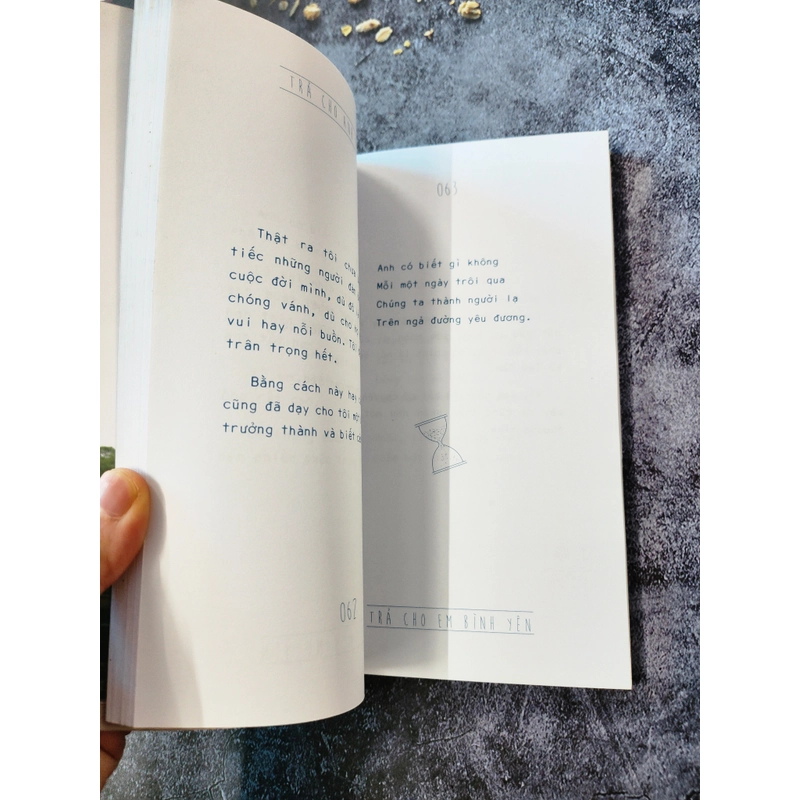 TRẢ CHO
Thật ra tôi chưa
tiếc những người
cuộc đời mình, dù
chóng vánh, dù cho
vui hay nỗi buồn.
trân trọng hết.
Bằng cách này hay
cũng đã dạy cho tôi
trưởng thành và biết
062
063
Anh có biết gì không
Mỗi một ngày trôi qua
Chúng ta thành người lạ
Trên ngả đường yêu đương.
TRẢ CHO EM BÌNH YÊN